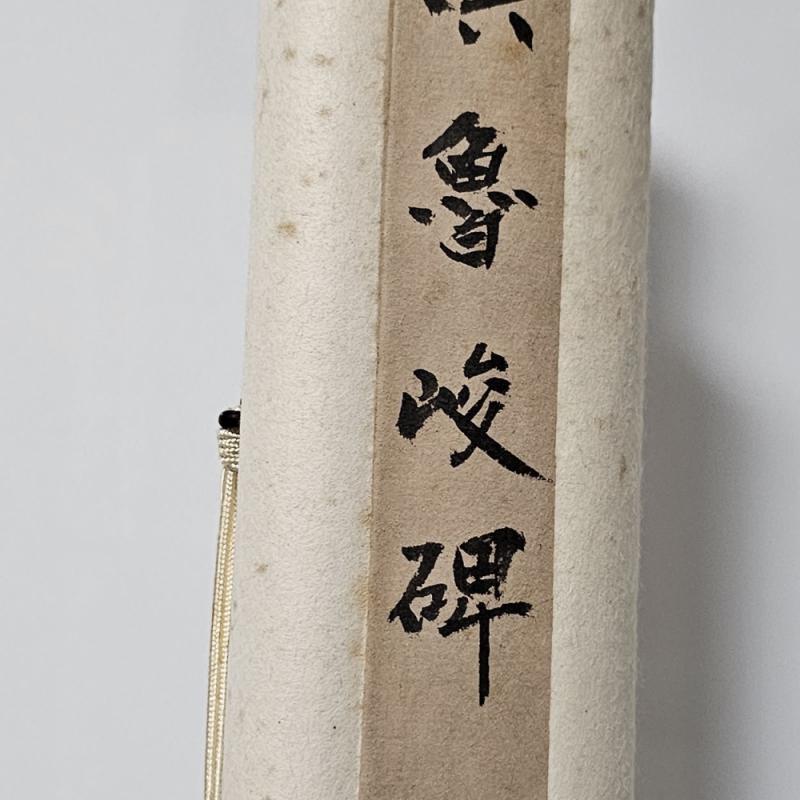 魯峻碑